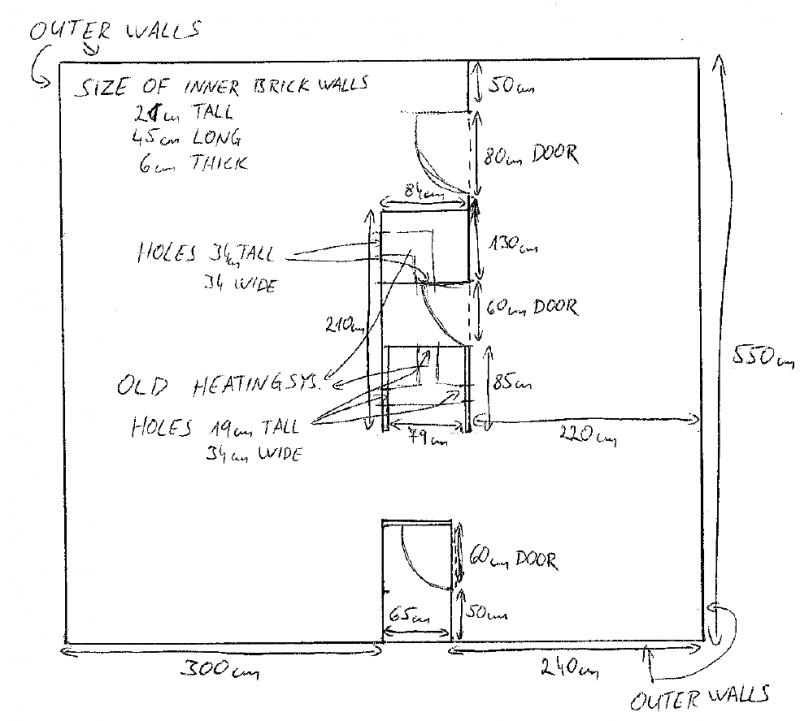 OUTER WALLS
SIZE OF INNER BRICK WALLS
21cm TALL
45cm LONG
6cm THICK
50cm
80cm DOOR
84cm
HOLES 34cm TALL
34 WIDE
130cm
60cm DOOR
210cm
550cm
OLD HEATINGSYS.
85cm
HOLES 19cm TALL
34cm WIDE
79cm
220cm
60cm DOOR
65cm
50cm
300cm
240cm
OUTER WALLS